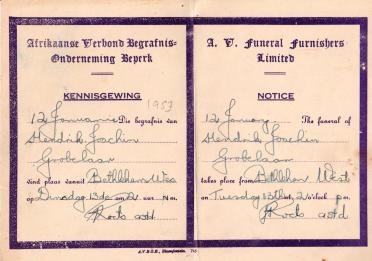 Afrikaanse Verbond Begrafnis-
Onderneming Beperk
KENNISGEWING
1953
12 Januarie Die begrafnis van
Hendrik Joachim
Grobelaar
vind plaas vanuit Bethlehem Wes
op Dinsdag 13de om 2 uur N m.
A. V. Funeral Furnishers
Limited
NOTICE
12 January The funeral of
Hendrik Joachim
Grobelaar
takes place from Bethlehem West
on Tuesday 13th at 2 o'clock p m.
A.V.B.O.B., Bloemfontein.